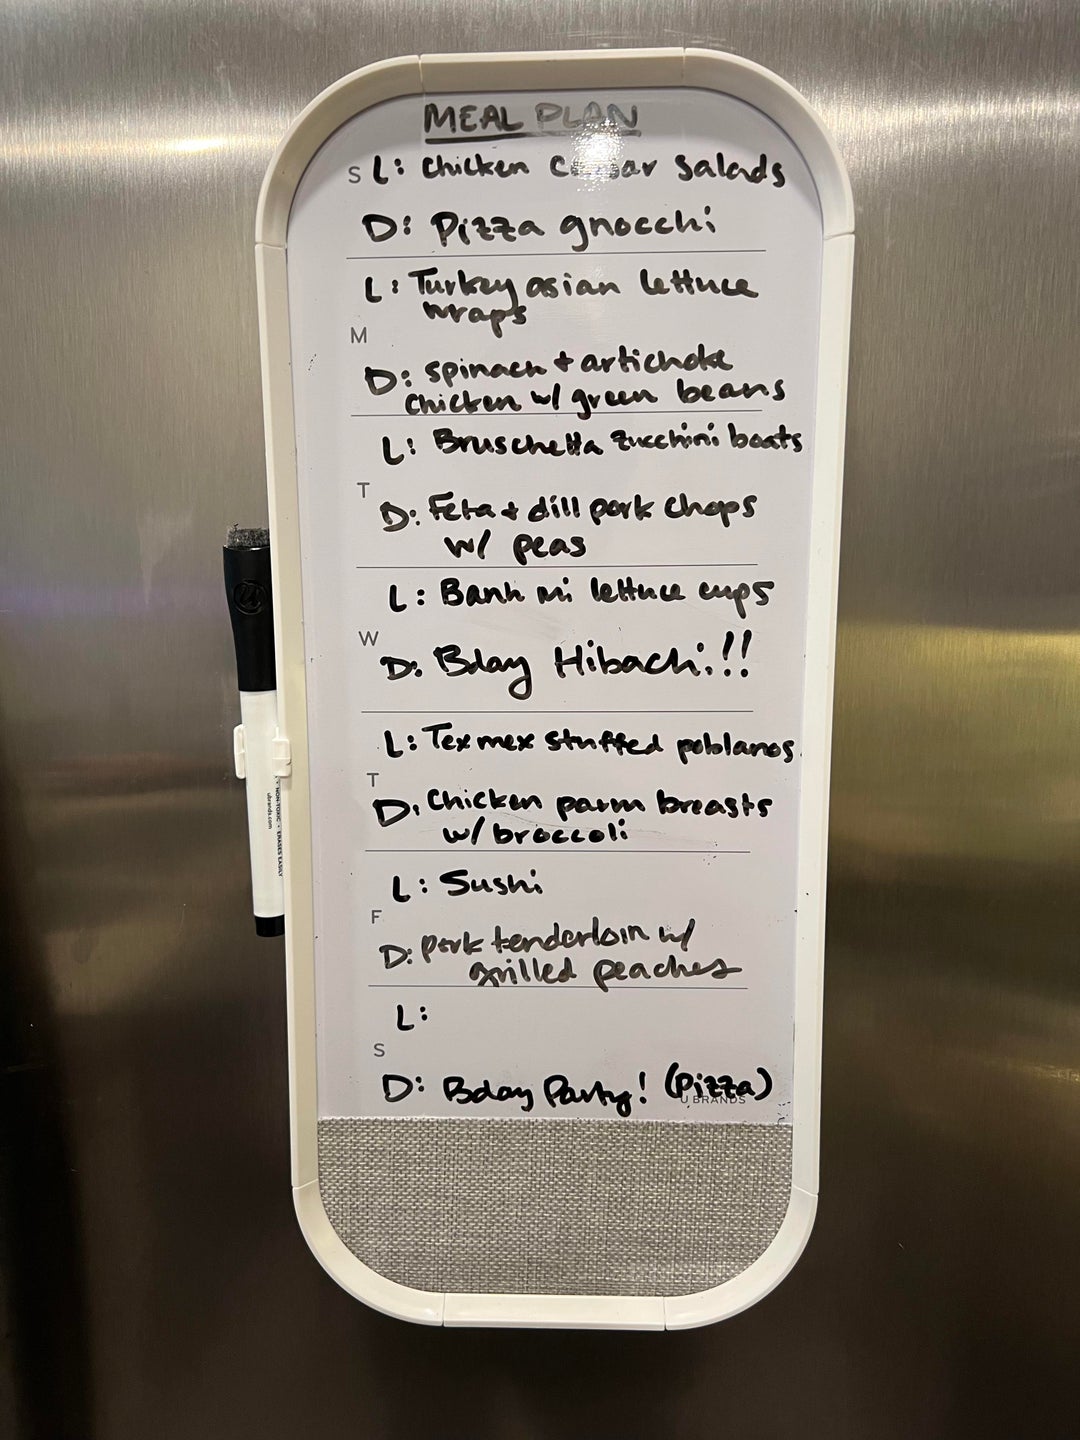 MEAL PLAN
S L: Chicken Caesar Salads
D: Pizza gnocchi
L: Turkey asian lettuce
wraps
M
D: spinach + artichoke
chicken w/ green beans
L: Bruschetta zucchini boats
T
D: Feta + dill pork chops
w/ peas
L: Banh mi lettuce cups
W
D: Bday Hibachi!!
L: Tex mex stuffed poblanos
T
D: Chicken parm breasts
w/ broccoli
L: Sushi
F
D: pork tenderloin w/
grilled peaches
L:
S
D: Bday Party! (Pizza)
U BRANDS
NON-TOXIC • ERASES EASILY
ubrands.com